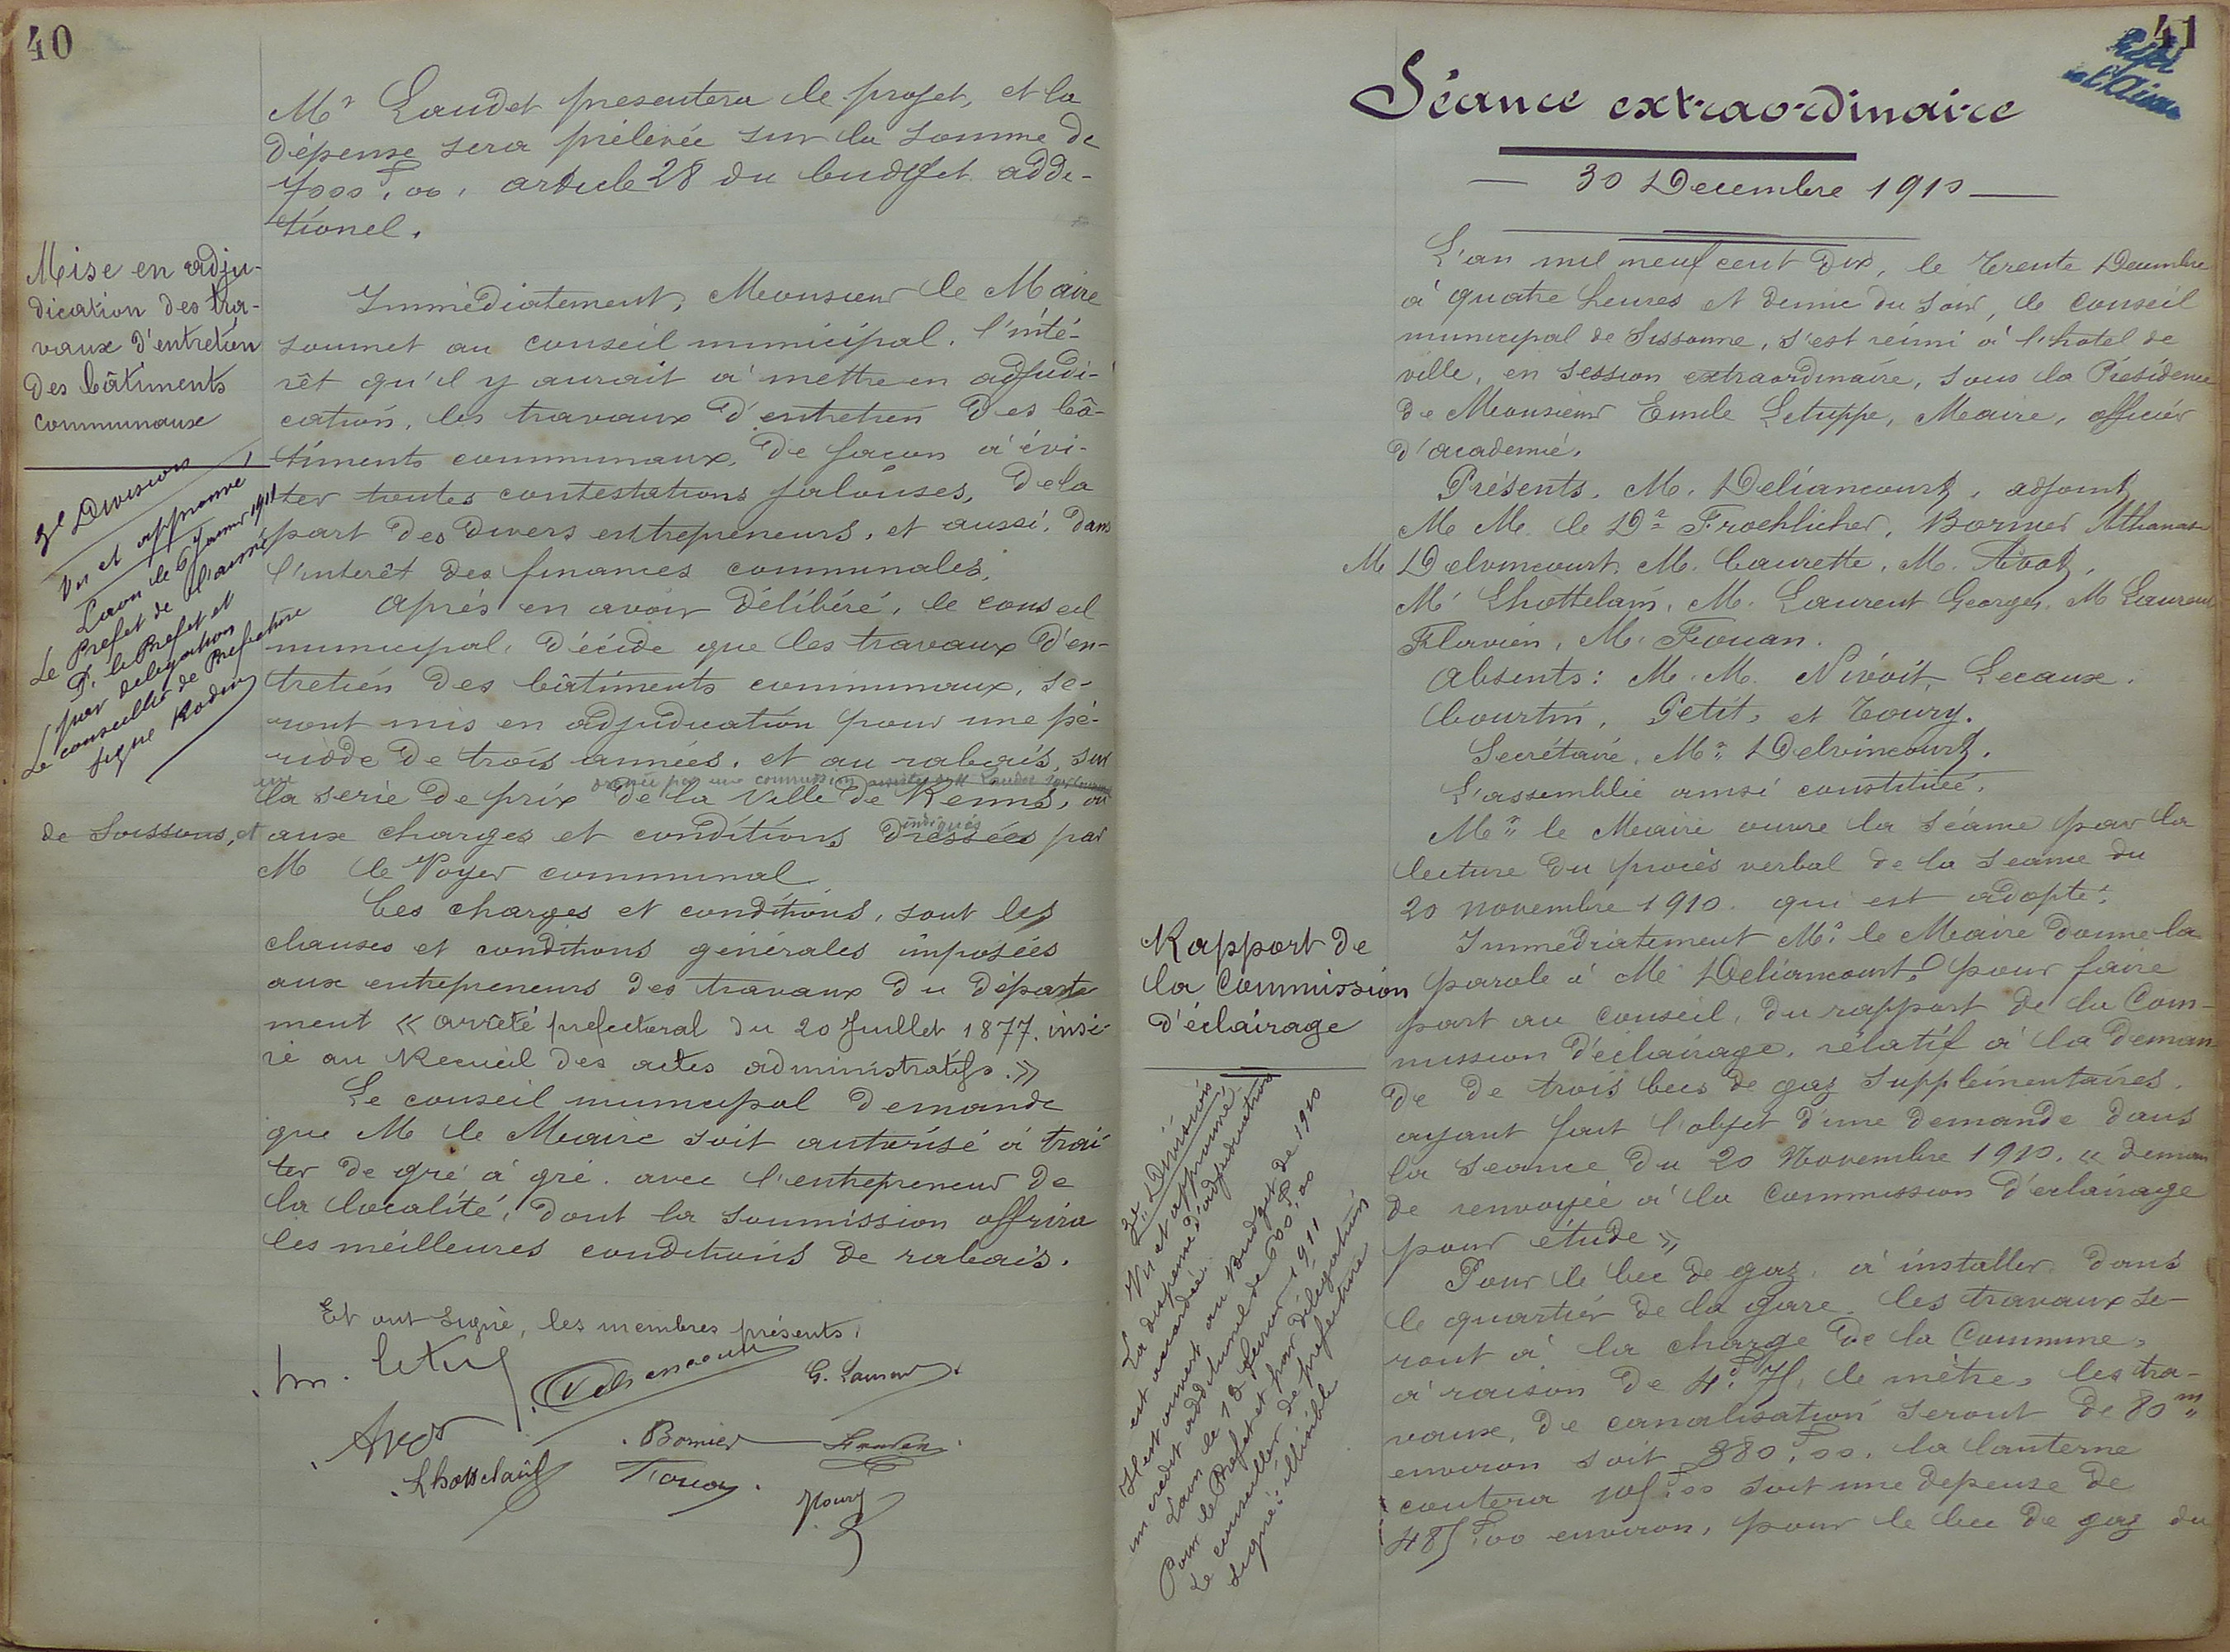 40
Mr Laudet presentera le projet, et la
dépense sera prélevée sur la somme de
7000f,00, article 28 du budget addi-
tionel.
Mise en adju-
dication des tra-
vaux d'entretien
des bâtiments
communaux
Immédiatement, Monsieur le Maire
soumet au conseil municipal, l'inté-
rêt qu'il y aurait à mettre en adjudi-
cation, les travaux d'entretien des bâ-
timents communaux, de façon à évi-
ter toutes contestations jalouses, de la
part des divers entrepreneurs, et aussi, dans
l'interêt des finances communales,
Après en avoir délibéré, le conseil
municipal, décide que les travaux d'en-
tretien des bâtiments communaux, se-
ront mis en adjudication pour une pé-
riode de trois années, et au rabais, sur
une dressée par une commission assistée de M Laudet
la serie de prix de la Ville de Reims, ou
de Soissons, et aux charges et conditions dressées par
indiqués
M le Voyer communal
Ces charges et conditions, sont les
clauses et conditions générales imposées
aux entrepreneurs des travaux du départe
ment « arrêté prefectoral du 20 Juillet 1877. insé-
ré au Recueil des actes administratifs. »
Le conseil municipal demande
que M le Maire soit autorisé à trai
ter de gré à gré. avec l'entrepreneur de
la localité, dont la soumission offrira
les meilleures conditions de rabais.
3e Division
Vu et approuvé
Laon le 6 Janvr 1911
Le Prefet de l'aisne
P. le Prefet et
par delegation
Le conseiller de Prefecture
signe Rodin
Et ont signé, les membres présents,
G. Laurent
Avot
Bornier
Lhottelain
Froуan
Toury
41
Préfet
de l'Aisne
Séance extraordinaire
30 Decembre 1910
L'an mil neuf cent dix, le trente Decembre
à quatre heures et demie du soir, le conseil
municipal de Sissonne, s'est réuni à l'hotel de
ville, en session extraordinaire, sous la Présidence
de Monsieur Emile Letuppe, Maire, officier
d'academie.
Présents. M. Deliancourt, adjoint,
M M. le Dr Froehlicher, Bornier Athanase
M Delvincourt, M. Caurette, M. Avot,
M Lhottelain, M. Laurent Georges, M Laurent
Flavien, M. Frouan.
Absents: M. M. Nivoit, Lecaux.
Courtin, Petit, et Toury.
Secrétaire, Mr Delvincourt.
L'assemblée ainsi constituée,
Mr le Maire ouvre la séance par la
lecture du procès verbal de la seance du
20 novembre 1910. qui est adopté.
Rapport de
la Commission
d'éclairage
Immédiatement Mr le Maire donne la
parole à M Deliancourt, pour faire
part au conseil, du rapport de la Com-
mission d'éclairage, rélatif à la deman
de de trois becs de gaz supplémentaires.
ayant fait l'objet d'une demande dans
la séance du 20 Novembre 1910. « deman
de renvoyée à la Commission d'eclairage
pour étude »
Pour le bec de gaz, à installer dans
le quartier de la gare, les travaux se-
ront à la charge de la Commune,
à raison de 4f,75, le mètre, les tra-
vaux, de canalisation seront de 80m
environ soit 380f,00, la lanterne
coutera 105f,00 soit une depense de
485f,00 environ, pour le bec de gaz du
3e Division
Vu et approuvé
La dispense d'adjudication
est accordée.
Il est ouvert au Budget de 1910
un credit additionnel de 600f,00
Laon le 18 fevrier 1911
Pour le Prefet et par délégation
Le conseiller de prefecture
signé: illisible